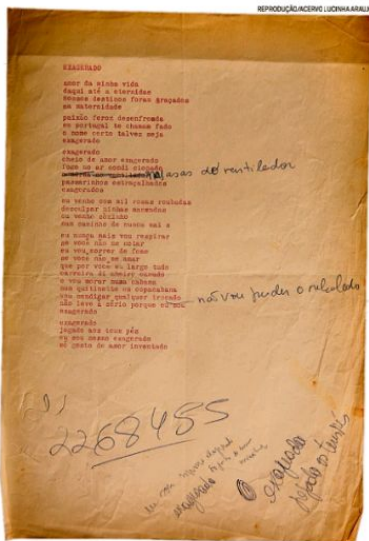 REPRODUÇÃO/ACERVO LUCINHA ARAUJO
EXAGERADO
amor da minha vida
daqui até a eternidade
nossos destinos foram traçados
na maternidade
paixão feroz desenfreada
em portugal te chamam fado
o nome certo talvez seja
exagerado
exagerado
cheio de amor exagerado
asas do ventilador
passarinhos estraçalhados
exagerados
eu venho com mil rosas roubadas
desculpar minhas
eu venho sózinho
eu nunca mais vou respirar
se você não me notar
eu vou morrer de fome
se você não me amar
que por você eu largo tudo
carreira dinheiro
e vou morar numa cabana
uma quitinete em copacabana
vou mendigar qualquer trocado
não leve à sério porque eu sou
exagerado
não vou perder o rebolado
exagerado
jogado aos teus pés
eu sou mesmo exagerado
só gosto de amor inventado
2268485
exagerado
exagerado
jogado aos teus pés